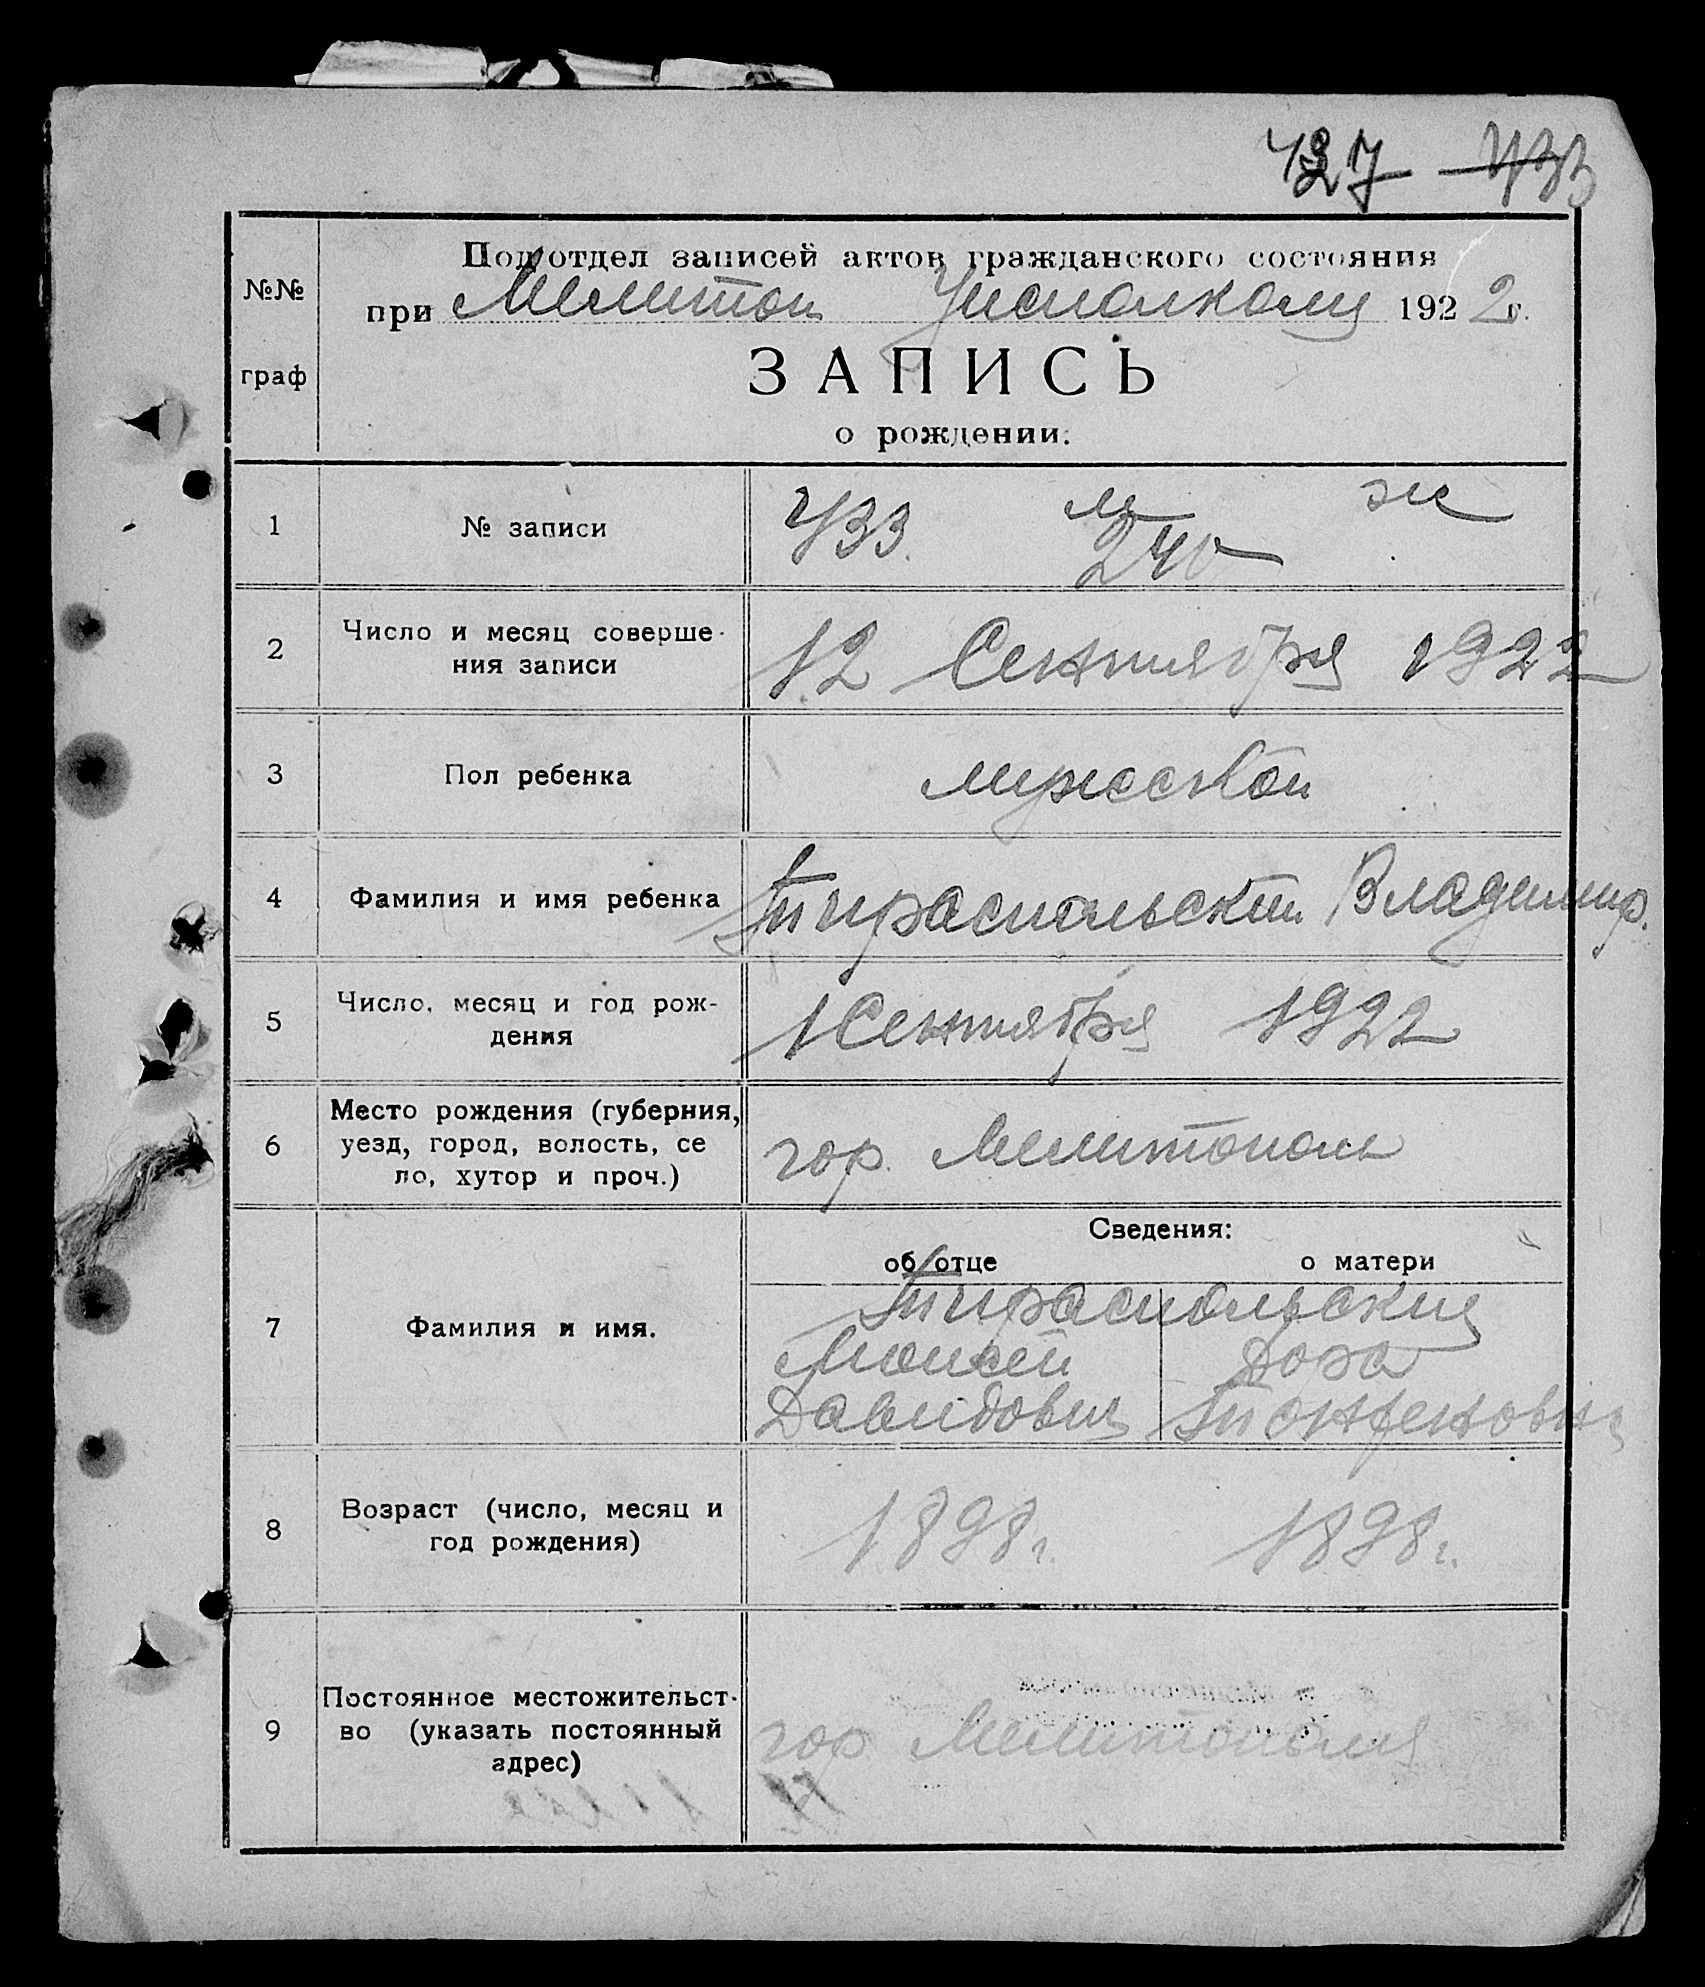 427 433
№№ граф
Подотдел записей актов гражданского состояния
при Мелитоп Уисполкому 1922 г.
ЗАПИСЬ
о рождении.
1 № записи 433. м ж
240
2 Число и месяц соверше-
ния записи 12 Сентября 1922
3 Пол ребенка мужской
4 Фамилия и имя ребенка Тираспольский Владимир.
5 Число, месяц и год рож-
дения 1 Сентября 1922
6 Место рождения (губерния,
уезд, город, волость, се
ло, хутор и проч.) гор. Мелитополь
Сведения:
об отце о матери
7 Фамилия и имя. Тираспольские
Моисей Дора
Давидович
8 Возраст (число, месяц и
год рождения) 1898 г. 1898 г.
9 Постоянное местожительст-
во (указать постоянный
адрес) гор Мелитополь